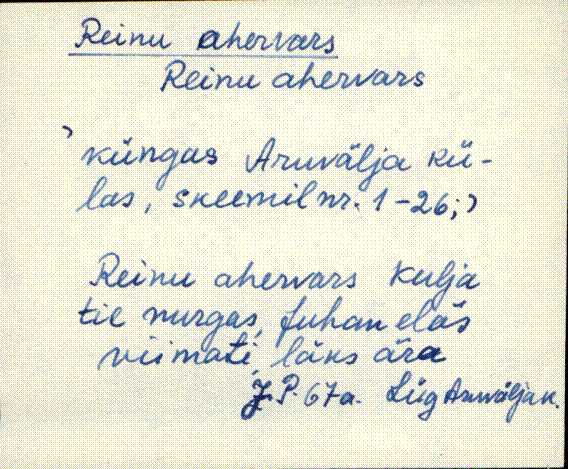 Reinu ahervars
Reinu ahervars
’küngas Aruvälja kü-
las, skeemil nr. 1-26;’
Reinu ahervars Kulja
tie nurgas, Juhan eläs
viimati, läks ära
J.P. 67a. Lüg Aruvälja k.